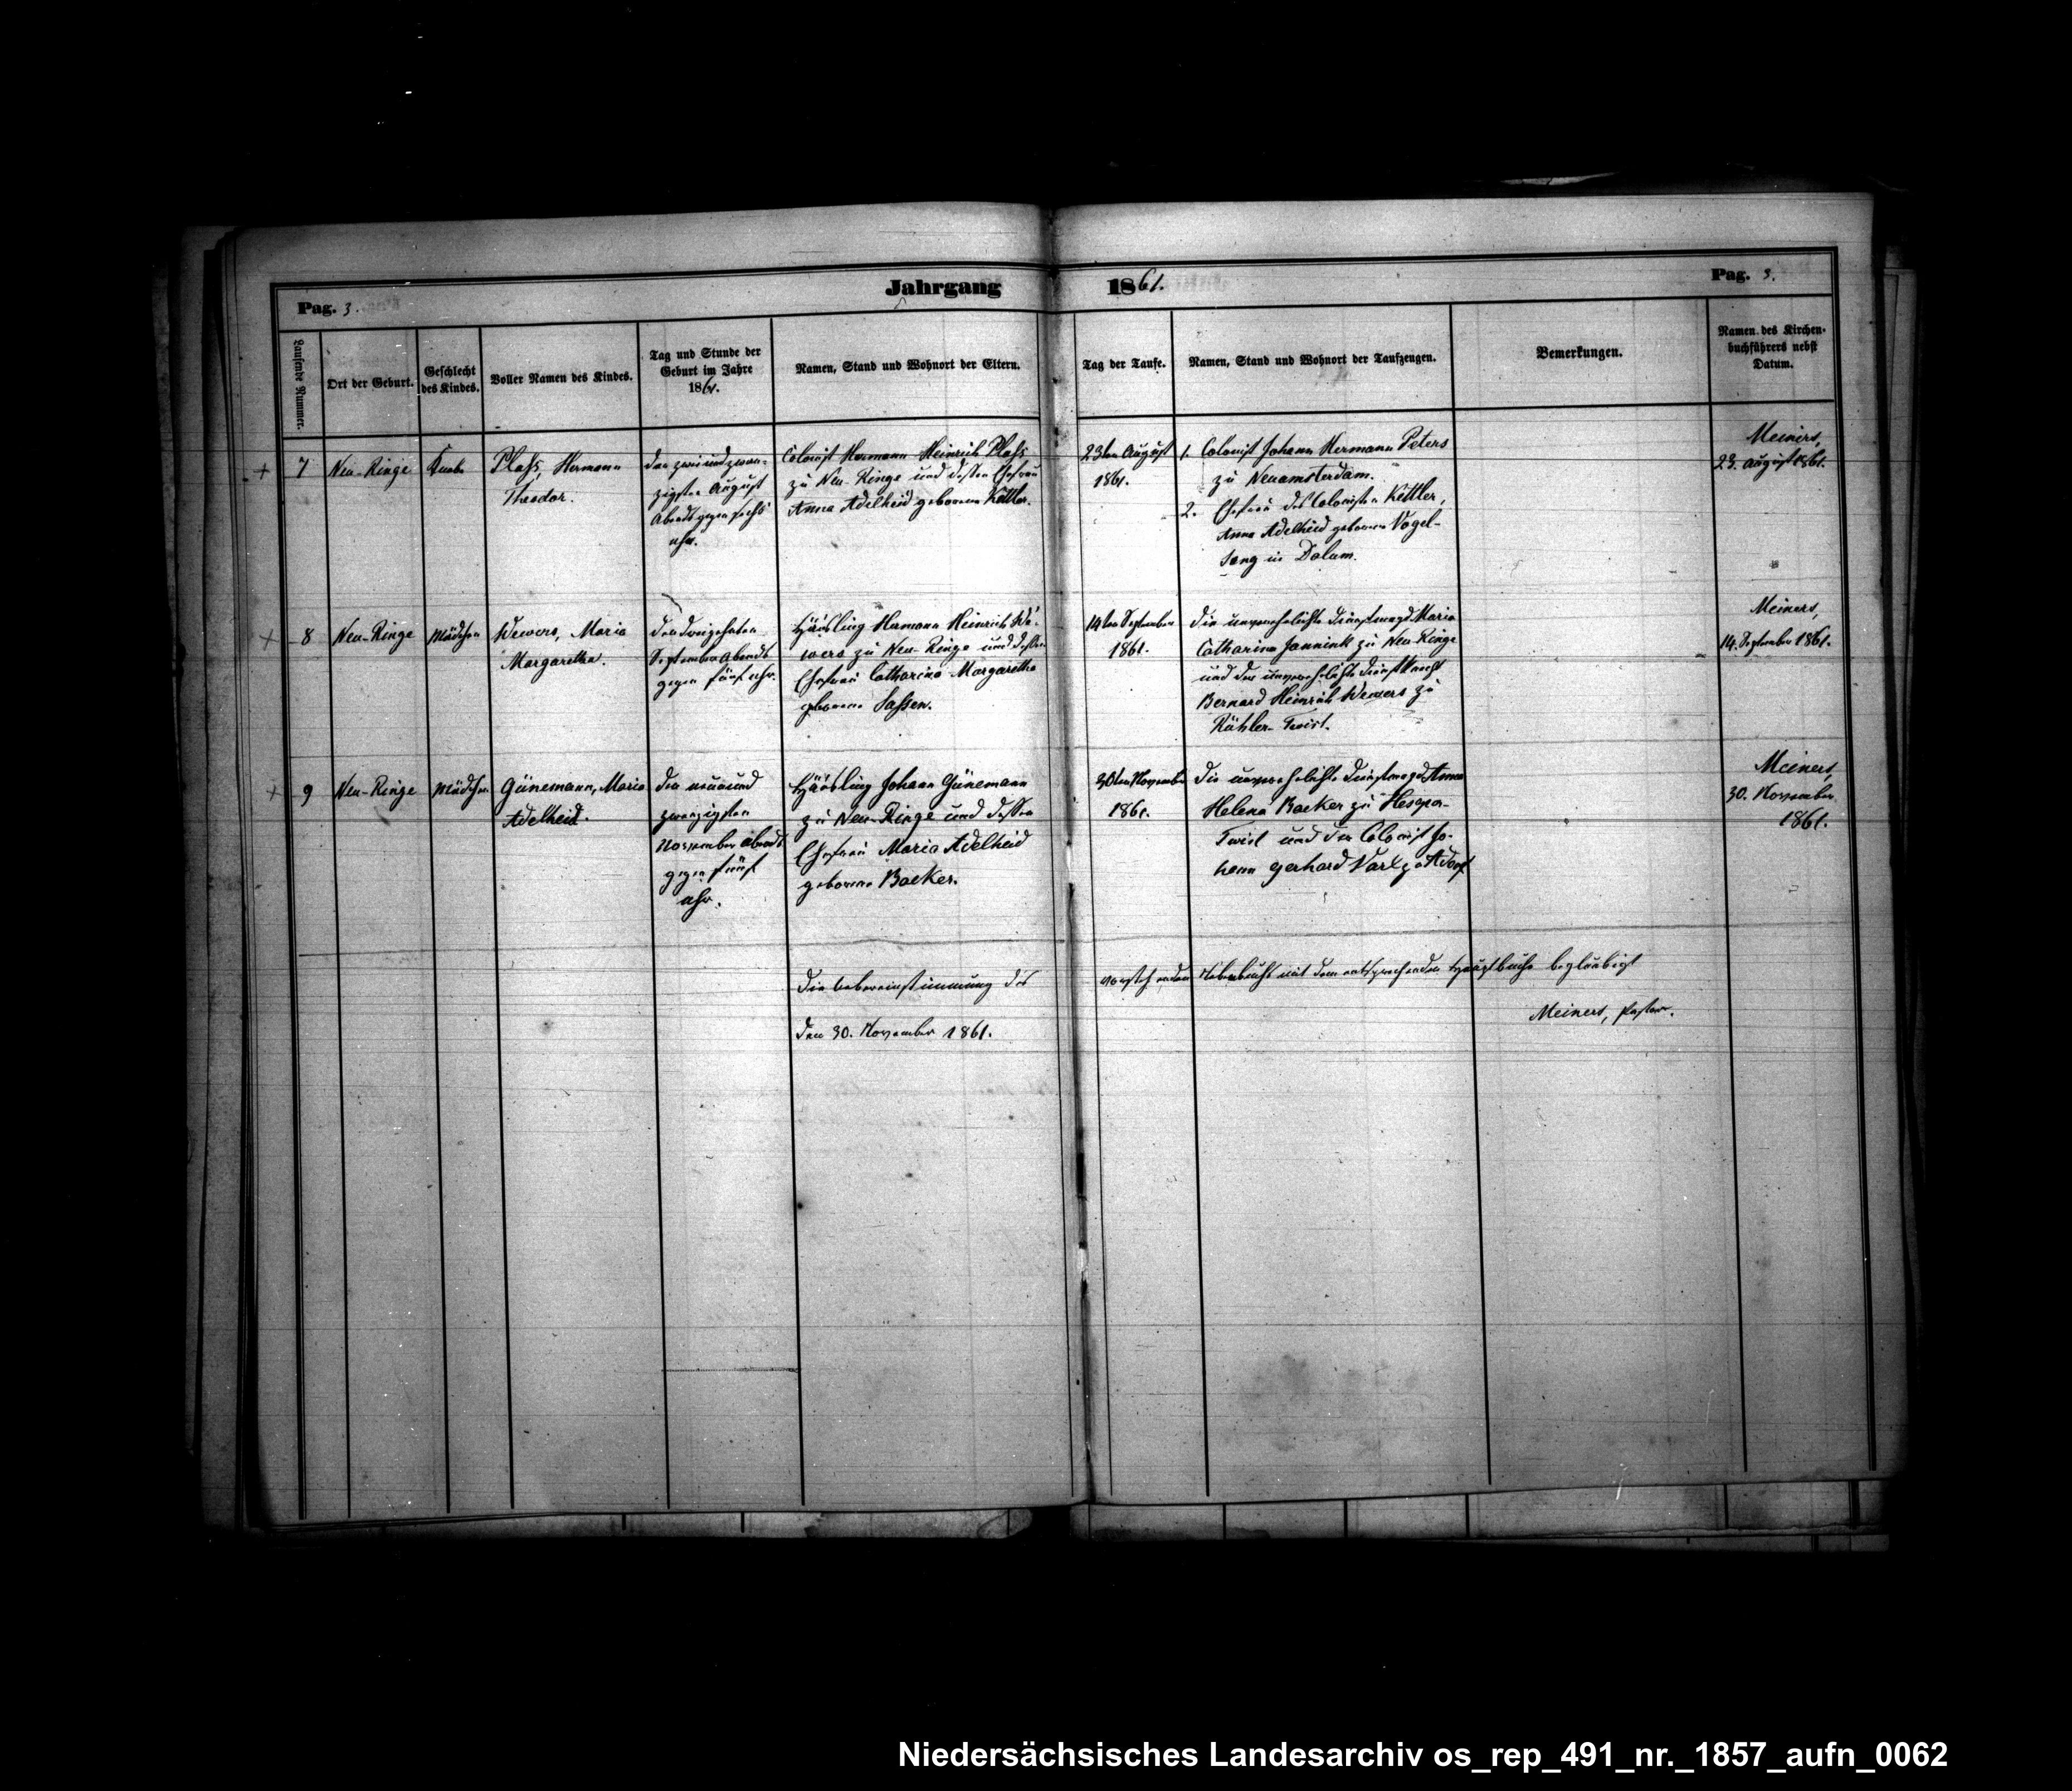 Jahrgang 1861.
Pag. 3.
Pag. 3.
Laufende Nummer.
Ort der Geburt.
Geschlecht des Kindes.
Voller Namen des Kindes.
Tag und Stunde der
Geburt im Jahre
1861.
Namen, Stand und Wohnort der Eltern.
Tag der Taufe.
Namen, Stand und Wohnort der Taufzeugen.
Bemerkungen.
Namen des Kirchen-
buchführers nebst
Datum.
+ 7
Neu-Ringe
Knabe
Plaß, Hermann
Theodor.
den zweiundzwan-
zigsten August
Abends gegen sechs
Uhr.
Colonist Hermann Heinrich Plaß
zu Neu-Ringe und dessen Ehefrau
Anna Adelheid geborene Kettler.
23ten August
1861.
1. Colonist Johann Hermann Peters
zu Neuamsterdam.
2. Ehefrau des Colonisten Kettler,
Anna Adelheid geborene Vogel-
sang in Dalum.
Meiners,
23. August 1861.
+ 8
Neu-Ringe
Mädchen
Wewers, Maria
Margaretha.
den dreizehnten
September Abends
gegen fünf Uhr.
Häusling Hermann Heinrich We-
wers zu Neu-Ringe und dessen
Ehefrau Catharina Margaretha
geborene Saßen.
14ten September
1861.
die unverehelichte Dienstmagd Maria
Catharina Jannink zu Neu-Ringe
und der unverehelichte Dienstknecht
Bernard Heinrich Wewers zu
Rühler-Twist.
Meiners,
14. September 1861.
+ 9
Neu-Ringe
Mädchen
Günemann, Maria
Adelheid.
den neunund
zwanzigsten
November Abends
gegen fünf
Uhr.
Häusling Johann Günemann
zu Neu-Ringe und dessen
Ehefrau Maria Adelheid
geborene Backer.
30ten November
1861.
die unverehelichte Dienstmagd Anna
Helena Backer zu Hesepe-
Twist und der Colonist Jo-
hann Gerhard Varel zu Adorf
Meiners,
30. November
1861.
Die Uebereinstimmung des vorstehenden Nebenbuchs mit dem entsprechenden Hauptbuche beglaubigt
den 30. November 1861.
Meiners, Pastor.
Niedersächsisches Landesarchiv os_rep_491_nr._1857_aufn_0062